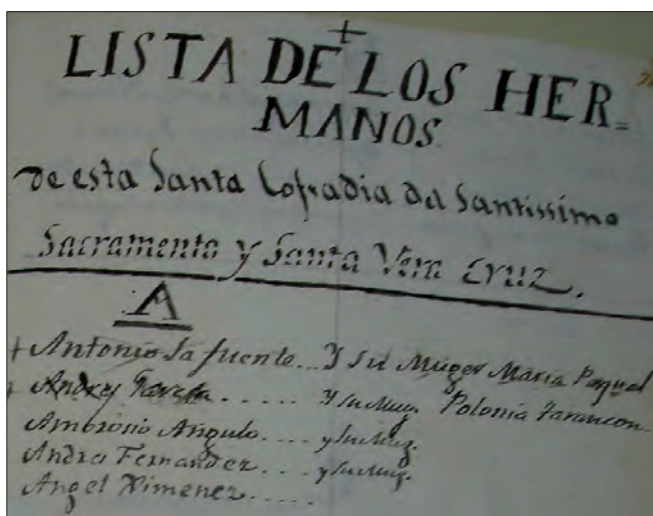 LISTA DE LOS HER=
MANOS
de esta Santa Cofradia del Santissimo
Sacramento y Santa Vera Cruz.
A
+ Antonio La fuente... Y su Muger Maria Pasqual
+ Andres Garcia ..... Y su Mug. Polonia Tarancon.
Ambrosio Angulo.... y su Mug.
Andres Fernandez... y su Mug.
Angel Ximenez.....